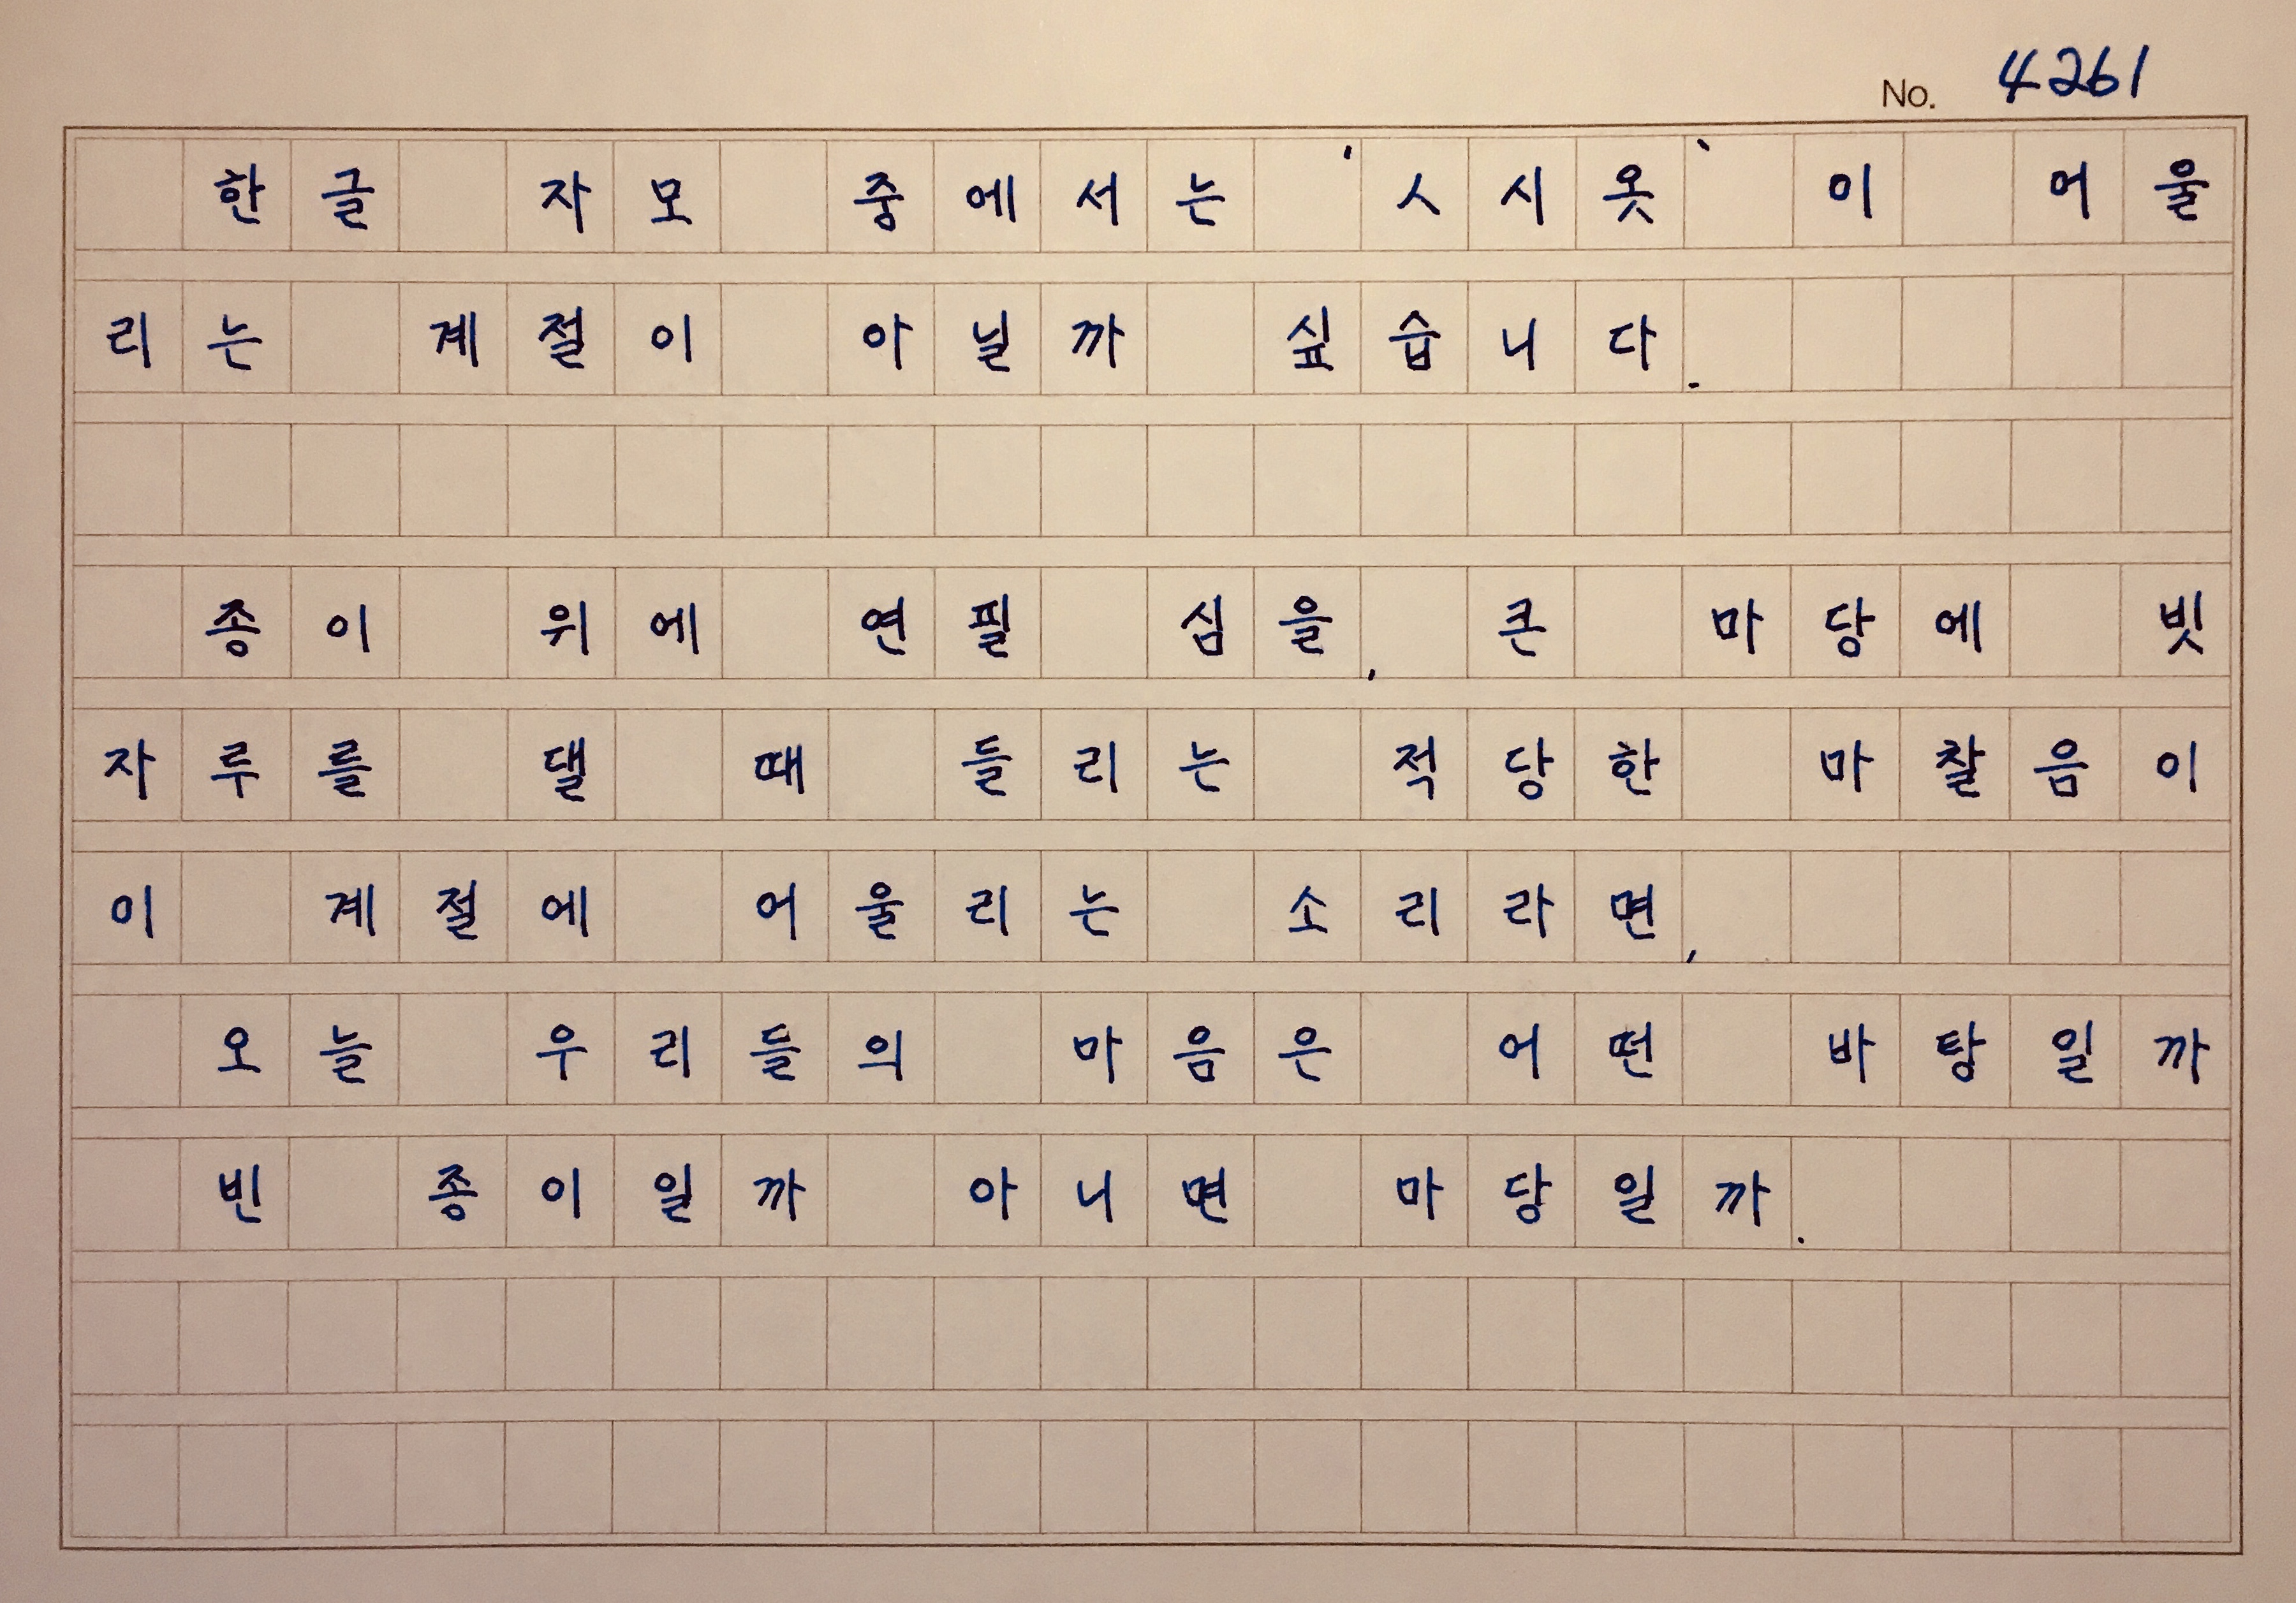 No. 4261
한글 자모 중에서는 'ㅅ시옷' 이 어울
리는 계절이 아닐까 싶습니다.
종이 위에 연필 심을, 큰 마당에 빗
자루를 댈 때 들리는 적당한 마찰음이
이 계절에 어울리는 소리라면,
오늘 우리들의 마음은 어떤 바탕일까
빈 종이일까 아니면 마당일까.